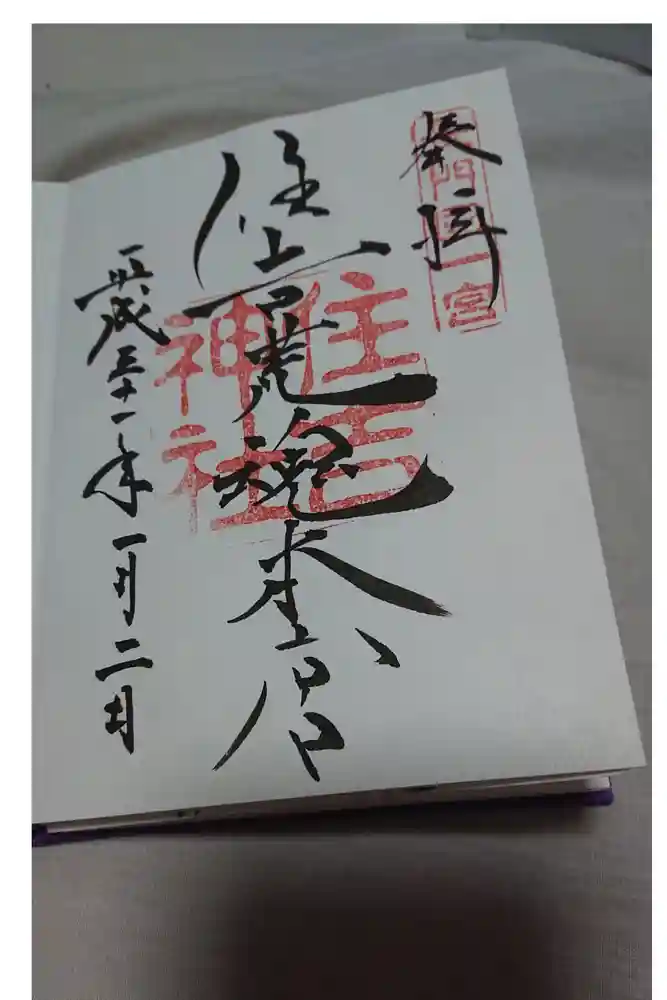 奉拝
長門国一宮
住吉荒魂本宮
住吉
神社
平成三十一年一月二日